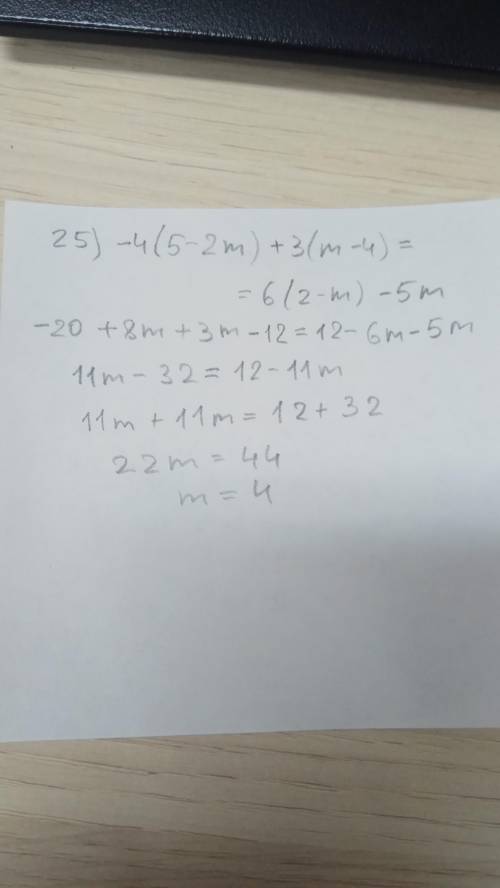 25) -4(5-2m)+3(m-4)=
=6(2-m)-5m
-20+8m+3m-12=12-6m-5m
11m-32=12-11m
11m+11m=12+32
22m=44
m=4